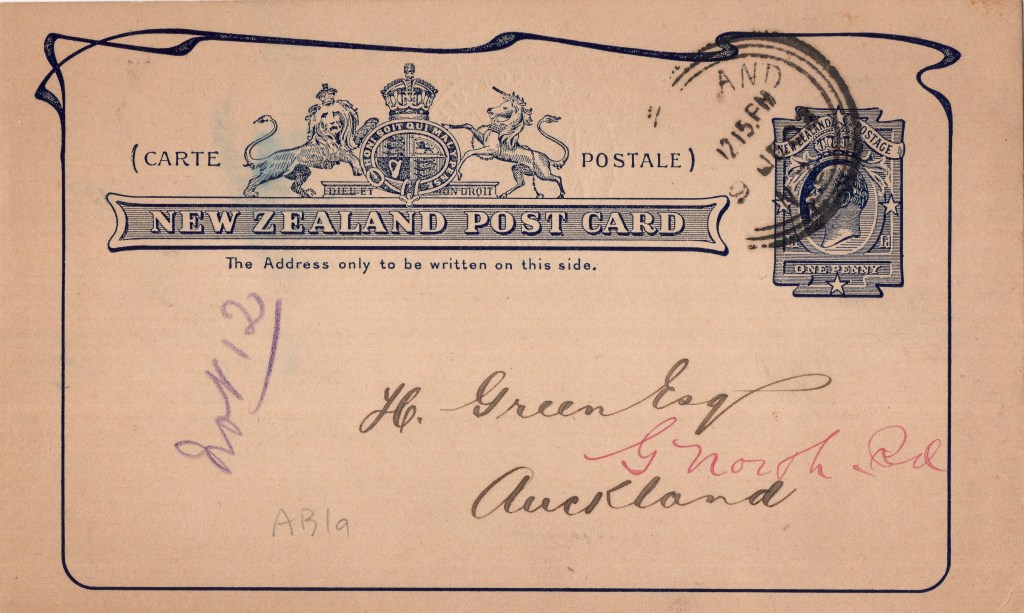 (CARTE POSTALE)
HONI SOIT QUI MAL Y PENSE
DIEU ET MON DROIT
NEW ZEALAND POST CARD
The Address only to be written on this side.
AND
12 15 PM
NEW ZEALAND POSTAGE
1d 1d
ONE PENNY
12
H. Green Esq
G North Rd
Auckland
AB1a